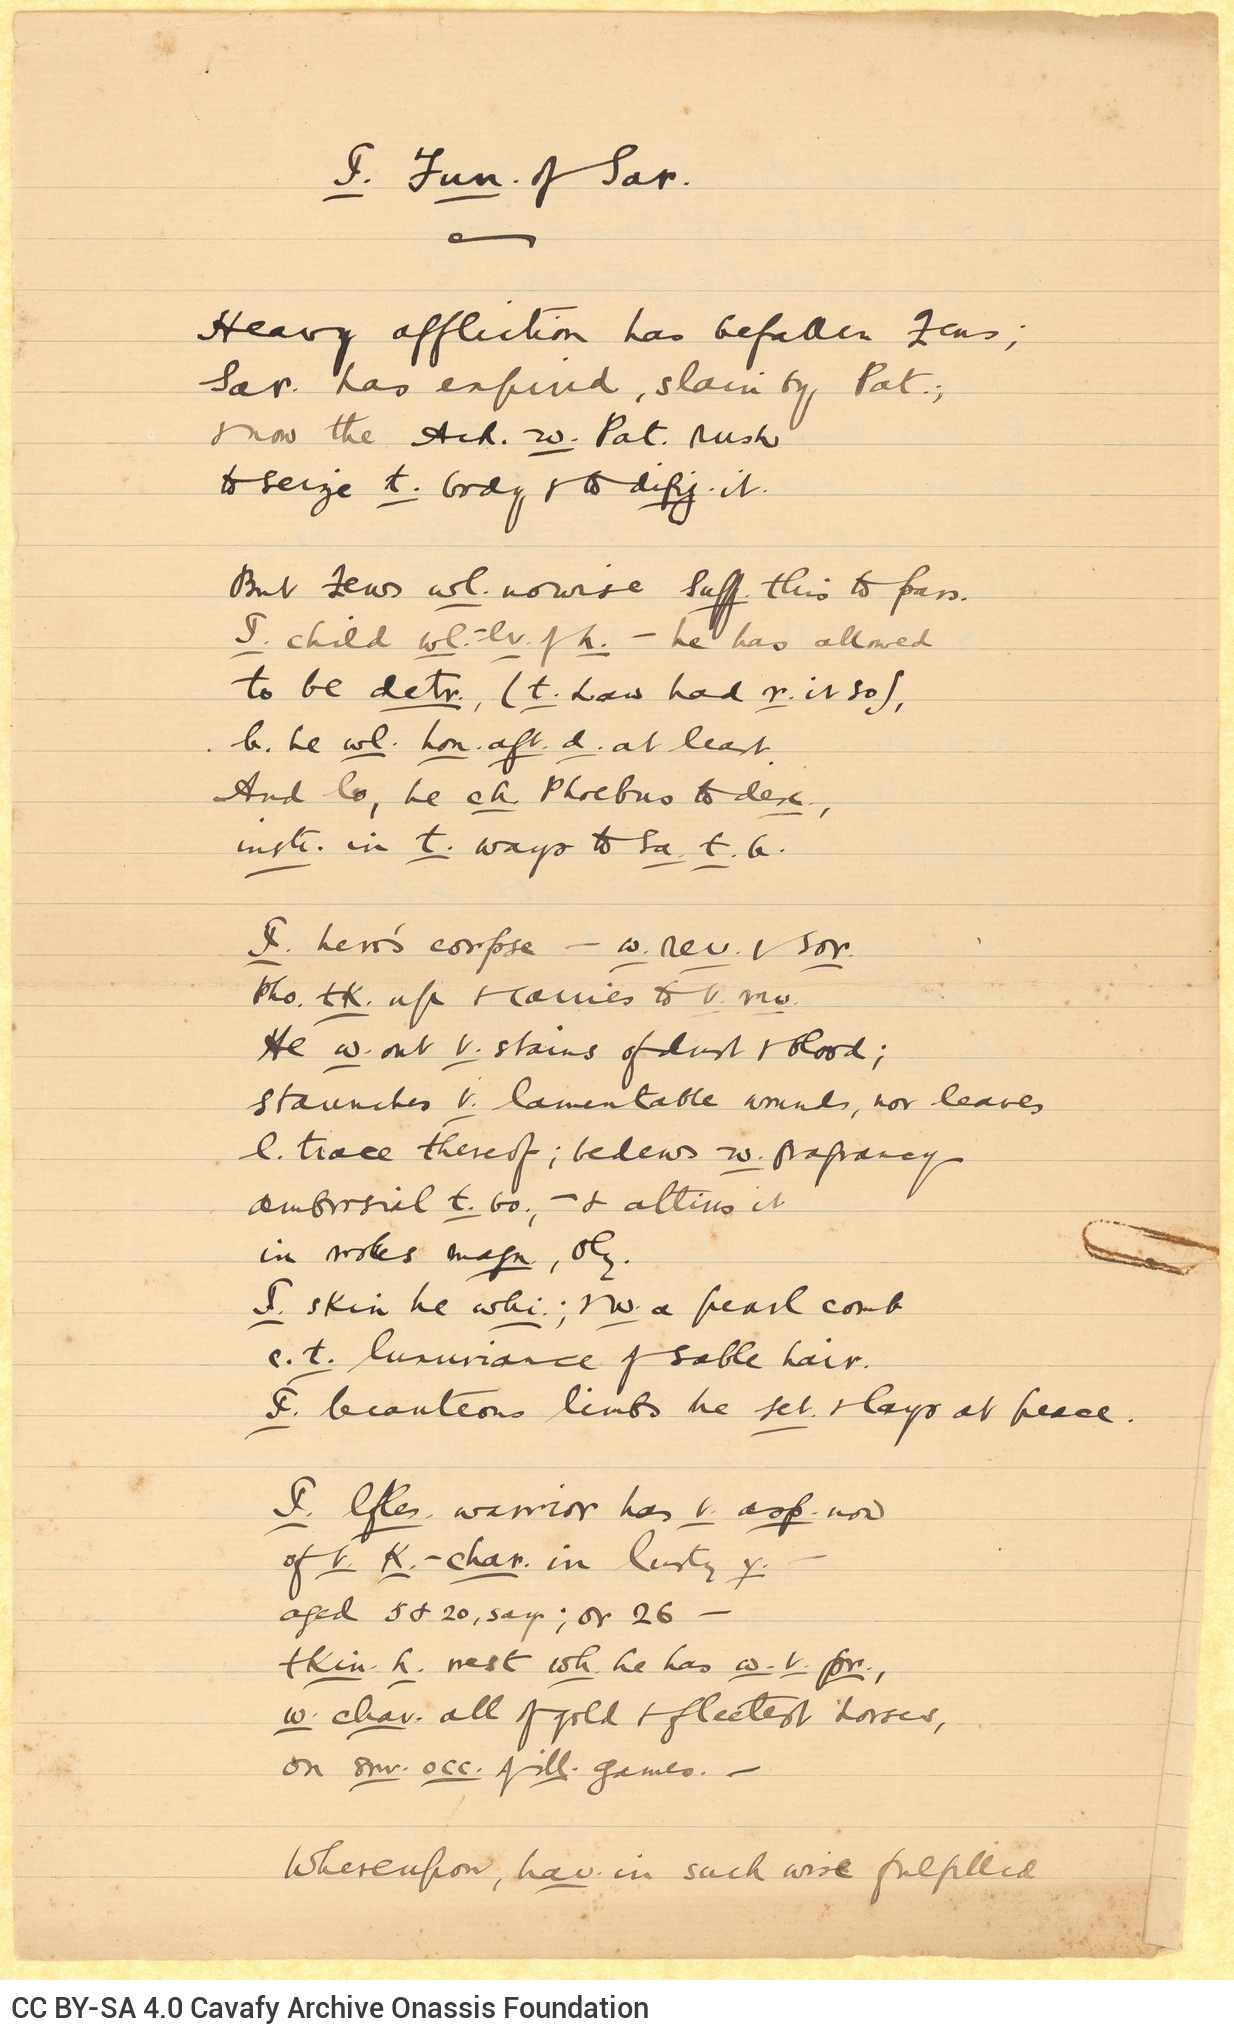 T. Fun. of Sar.
Heavy affliction has befallen Zeus;
Sar. has expired, slain by Pat.;
& now the Ach. w. Pat. rush
to seize t. body & to difig. it.
But Zeus wl. nowise suff. this to pass.
T. child wl.-lv. of h. – he has allowed
to be detr., (t. Law had r. it so),
b. he wl. hon. aft. d. at least.
And lo, he ch. Phoebus to desc.,
instr. in t. ways to sa. t. b.
T. hero's corpse – w. rev. & sor.
Pho. tk. up & carries to t. riv.
He w. out t. stains of dust & blood;
staunches t. lamentable wounds, nor leaves
l. trace thereof; bedews w. fragrancy
ambrosial t. bo., – & attires it
in robes magn., Oly.
T. skin he whi.; & w. a pearl comb
c. t. luxuriance of sable hair.
T. beauteous limbs he set. & lays at peace.
T. lfles. warrior has t. asp. now
of t. K.-char. in lusty y. –
aged 5 & 20, say; or 26 –
tkin. h. rest wh. he has w. t. pr.,
w. char. all of gold & fleetest horses,
on sm. occ. of ill. games. –
Whereupon, hav. in such wise fulfilled
CC BY-SA 4.0 Cavafy Archive Onassis Foundation